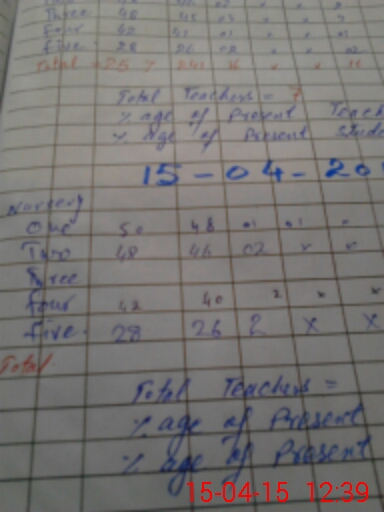 Three 48
Four 42
Five 28 26 02
Total
Total Teachers = 7
% age of Present Teach
% age of Present Stude
15-04-20
Nursery
One 50 48 01 01
Two 48 46 02 x x
Three
Four 42 40 2 x x
Five 28 26 2 x x
Total
Total Teachers =
% age of Present
% age of Present
15-04-15 12:39